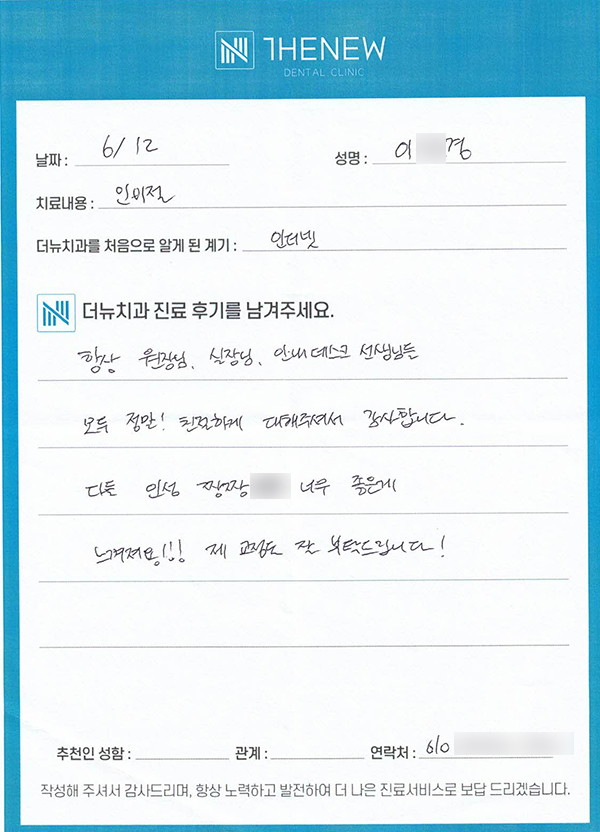 THENEW
DENTAL CLINIC
날짜 : 6/12 성명 : 이 경
치료내용 : 인비절
더뉴치과를 처음으로 알게 된 계기 : 인터넷
더뉴치과 진료 후기를 남겨주세요.
항상 원장님, 실장님, 안내데스크 선생님들
모두 정말! 친절하게 대해주셔서 감사합니다.
다들 인성 짱짱 너무 좋은게
느껴져요!!! 제 교정도 잘 부탁드립니다!
추천인 성함 : 관계 : 연락처 : 010
작성해 주셔서 감사드리며, 항상 노력하고 발전하여 더 나은 진료서비스로 보답 드리겠습니다.